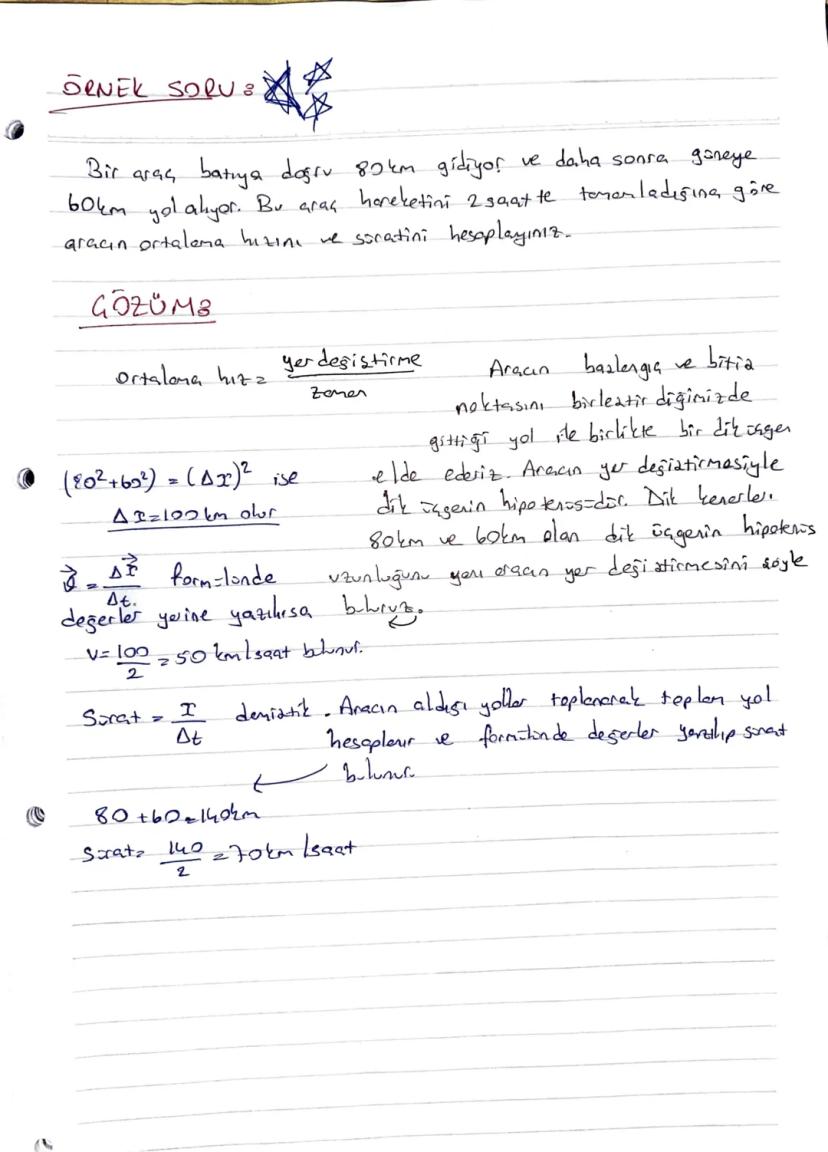 ÖRNEK SORU:
Bir araç batıya doğru 80km gidiyor ve daha sonra güneye
60km yol alıyor. Bu araç hareketini 2 saatte tamamladığına göre
aracın ortalama hızını ve süratini hesaplayınız.
ÇÖZÜM:
Ortalama hız = yer değiştirme / zaman
Aracın başlangıç ve bitiş
noktasını birleştirdiğimizde
gittiği yol ile birlikte bir dik üçgen
elde ederiz. Aracın yer değiştirmesiyle
dik üçgenin hipotenüsüdür. Dik kenarları
80km ve 60km olan dik üçgenin hipotenüs
uzunluğunu yani aracın yer değiştirmesini şöyle
buluruz.
(80²+60²) = (Δx)² ise
Δx=100km olur
Δt. formülünde
değerler yerine yazılırsa
V= 100/2 = 50 km/saat bulunur.
Sürat = x/Δt demiştik. Aracın aldığı yollar toplanarak toplam yol
hesaplanır ve formülünde değerler yazılıp sürat
bulunur.
80+60=140km
Sürat= 140/2 =70km/saat